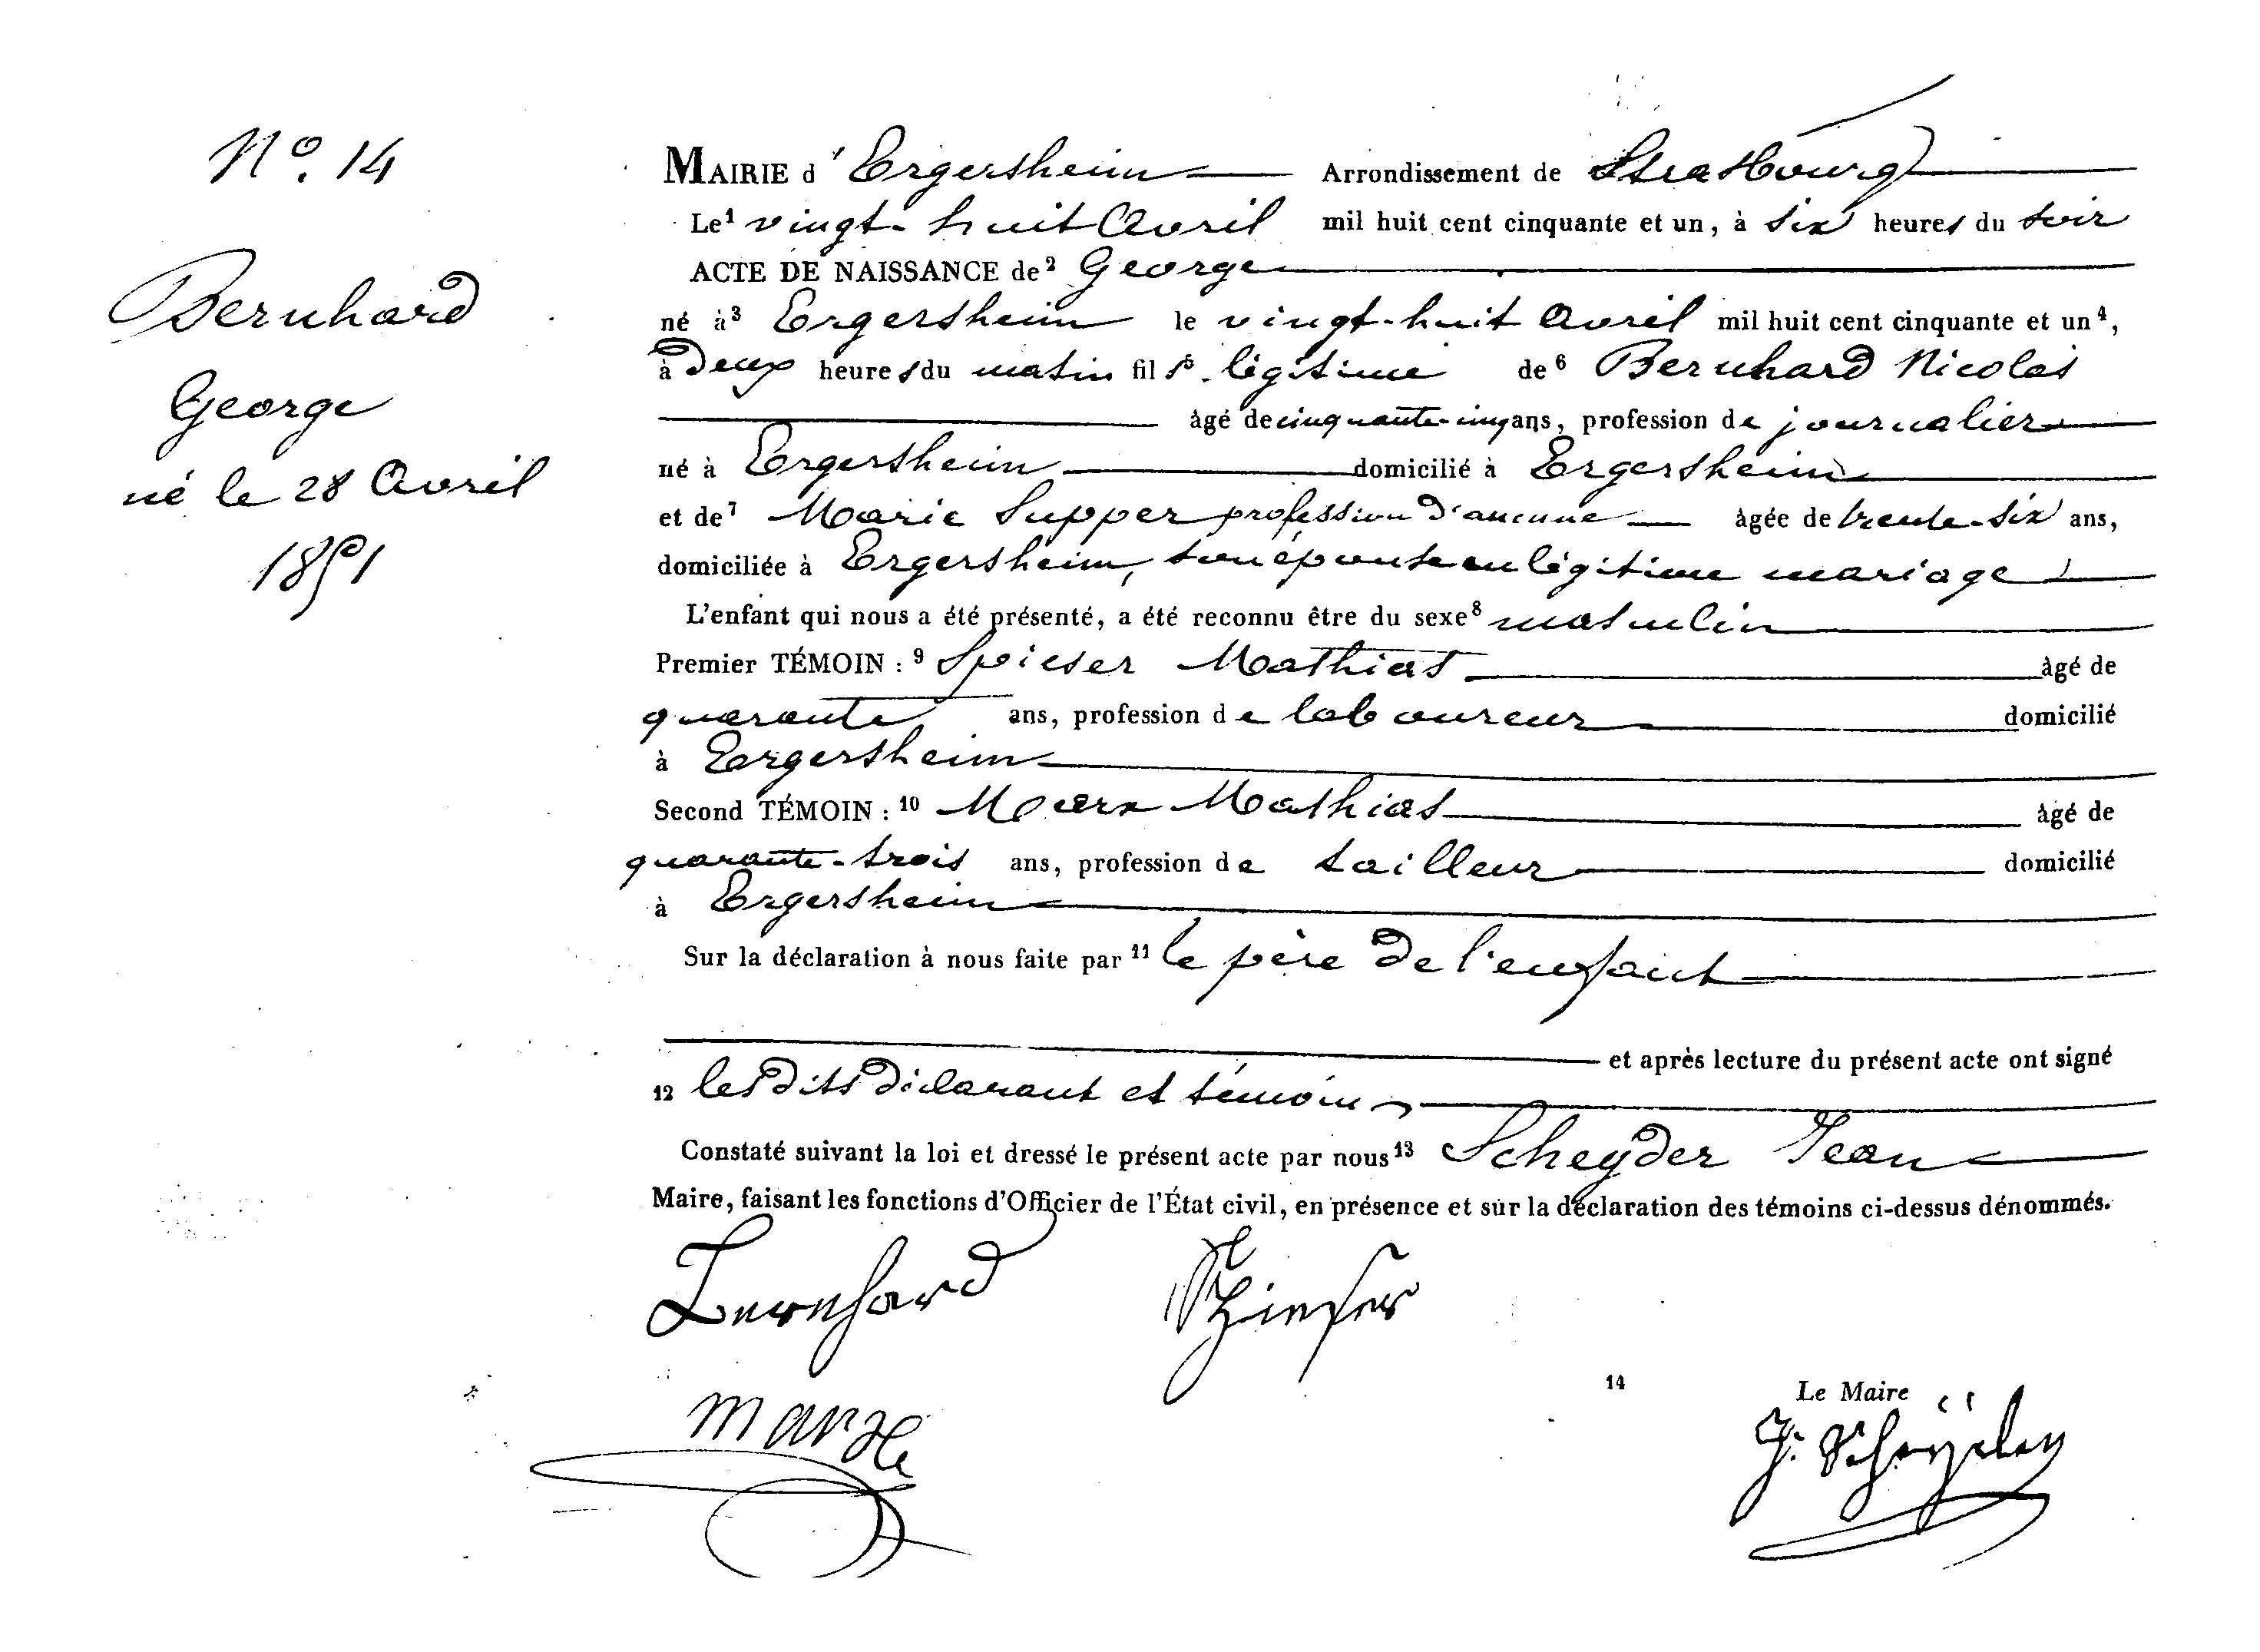 N° 14
Bernhard
George
né le 28 Avril
1851
MAIRIE d'Ergersheim Arrondissement de Strasbourg
Le¹ vingt-huit Avril mil huit cent cinquante et un, à six heures du soir
ACTE DE NAISSANCE de² George
né à³ Ergersheim le vingt-huit Avril mil huit cent cinquante et un⁴,
à deux heures du matin fils⁵ légitime de⁶ Bernhard Nicolas
âgé de cinquante-cinq ans, profession de journalier
né à Ergersheim domicilié à Ergersheim
et de⁷ Marie Supper profession d'aucune âgée de trente-six ans,
domiciliée à Ergersheim, son épouse en légitime mariage
L'enfant qui nous a été présenté, a été reconnu être du sexe⁸ masculin
Premier TÉMOIN : ⁹ Spieser Mathias âgé de
quarante ans, profession de laboureur domicilié
à Ergersheim
Second TÉMOIN : ¹⁰ Marx Mathias âgé de
quarante-trois ans, profession de tailleur domicilié
à Ergersheim
Sur la déclaration à nous faite par ¹¹ le père de l'enfant
et après lecture du présent acte ont signé
¹² les dits déclarant et témoins
Constaté suivant la loi et dressé le présent acte par nous¹³ Scheyder Jean
Maire, faisant les fonctions d'Officier de l'État civil, en présence et sur la déclaration des témoins ci-dessus dénommés.
Bernhard Spieser
14 Le Maire
Marx J. Scheÿder